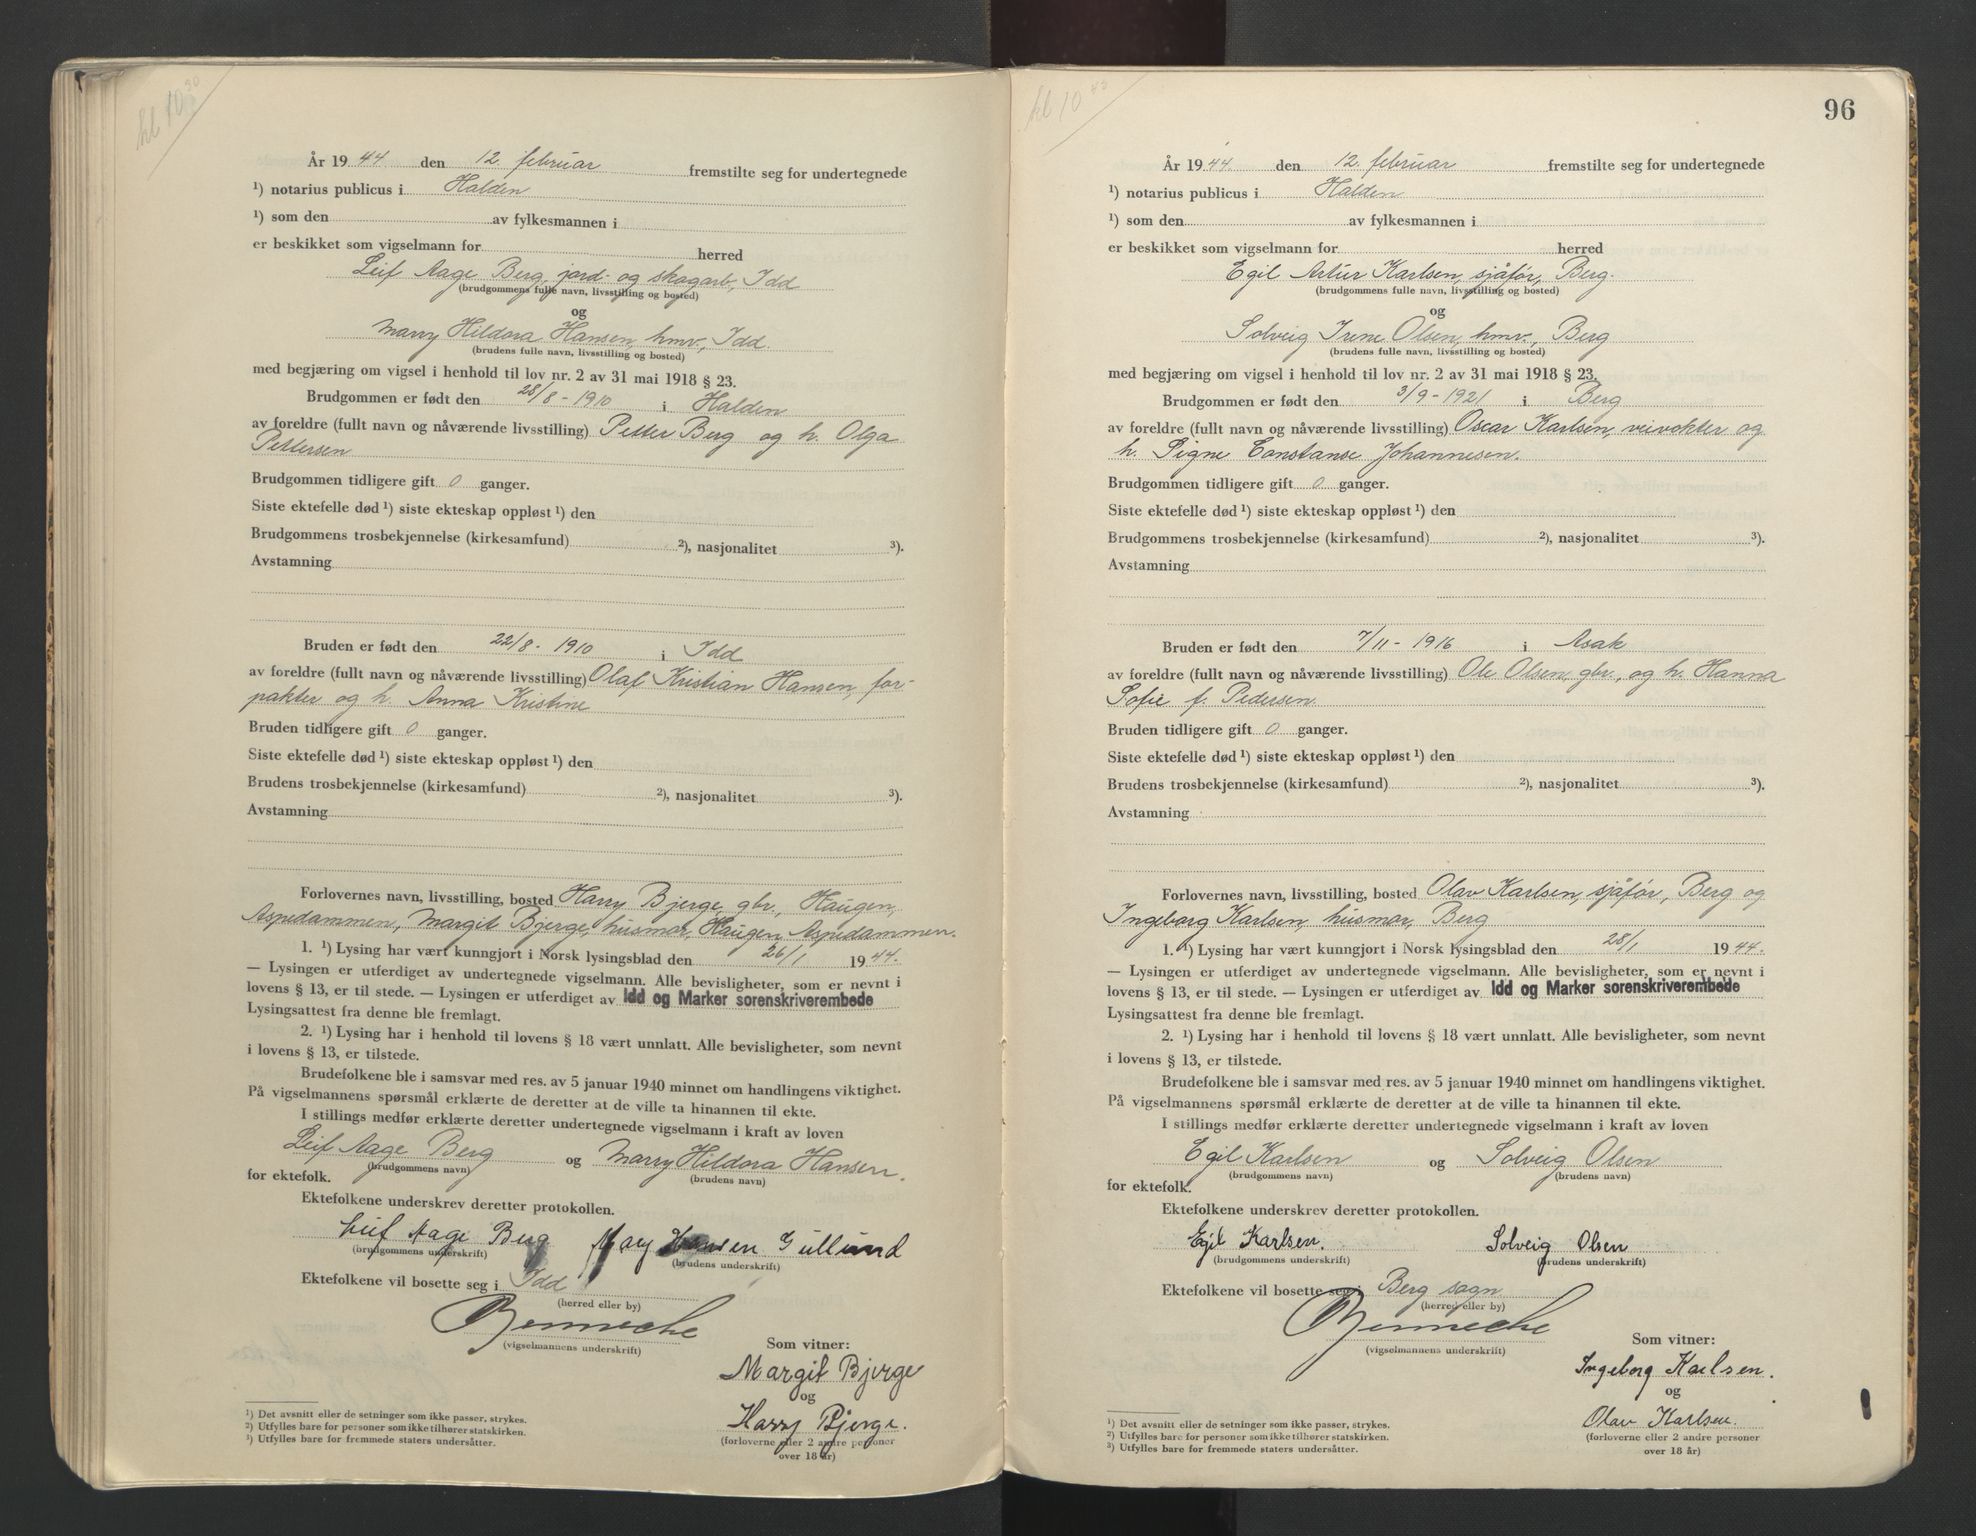 kl 10 30
År 1944 den 12. februar fremstilte seg for undertegnede
¹) notarius publicus i Halden
¹) som den av fylkesmannen i
er beskikket som vigselmann for herred
Leif Aage Berg, jord- og skogarb., Idd
(brudgommens fulle navn, livsstilling og bosted)
og
Marry Hildora Hansen, hmv., Idd.
(brudens fulle navn, livsstilling og bosted)
med begjæring om vigsel i henhold til lov nr. 2 av 31 mai 1918 § 23.
Brudgommen er født den 28/8 - 1910 i Halden
av foreldre (fullt navn og nåværende livsstilling) Petter Berg og h. Olga
Pettersen
Brudgommen tidligere gift 0 ganger.
Siste ektefelle død ¹) siste ekteskap oppløst ¹) den
Brudgommens trosbekjennelse (kirkesamfund) ²), nasjonalitet ³).
Avstamning
Bruden er født den 22/8 - 1910 i Idd
av foreldre (fullt navn og nåværende livsstilling) Olaf Kristian Hansen, for-
pakter og h. Anna Kristine
Bruden tidligere gift 0 ganger.
Siste ektefelle død ¹) siste ekteskap oppløst ¹) den
Brudens trosbekjennelse (kirkesamfund) ²), nasjonalitet ³).
Avstamning
Forlovernes navn, livsstilling, bosted Harry Bjerge, gbr., Haugen,
Aspedammen, Margit Bjerge, husmor, Haugen, Aspedammen.
1. ¹) Lysing har vært kunngjort i Norsk lysingsblad den 26/1 1944.
— Lysingen er utferdiget av undertegnede vigselmann. Alle bevisligheter, som er nevnt i
lovens § 13, er til stede. — Lysingen er utferdiget av Idd og Marker sorenskriverembede
Lysingsattest fra denne ble fremlagt.
2. ¹) Lysing har i henhold til lovens § 18 vært unnlatt. Alle bevisligheter, som nevnt
i lovens § 13, er tilstede.
Brudefolkene ble i samsvar med res. av 5 januar 1940 minnet om handlingens viktighet.
På vigselmannens spørsmål erklærte de deretter at de ville ta hinannen til ekte.
I stillings medfør erklærte deretter undertegnede vigselmann i kraft av loven
Leif Aage Berg og Marry Hildora Hansen.
(brudgommens navn) (brudens navn)
for ektefolk.
Ektefolkene underskrev deretter protokollen.
Leif Aage Berg Mary Hansen Gullund
(brudgommens underskrift) (brudens underskrift)
Ektefolkene vil bosette seg i Idd
(herred eller by)
Benneche
(vigselmannens underskrift)
Som vitner:
Margit Bjerge
og
Harry Bjerge.
(forloverne eller 2 andre personer
over 18 år)
¹) Det avsnitt eller de setninger som ikke passer, strykes.
²) Utfylles bare for personer som ikke tilhører statskirken.
³) Utfylles bare for fremmede staters undersåtter.
kl 10 45
96
År 1944 den 12. februar fremstilte seg for undertegnede
¹) notarius publicus i Halden
¹) som den av fylkesmannen i
er beskikket som vigselmann for herred
Egil Artur Karlsen, sjåfør, Berg.
(brudgommens fulle navn, livsstilling og bosted)
og
Solveig Irene Olsen, hmv., Berg
(brudens fulle navn, livsstilling og bosted)
med begjæring om vigsel i henhold til lov nr. 2 av 31 mai 1918 § 23.
Brudgommen er født den 3/9 - 1921 i Berg
av foreldre (fullt navn og nåværende livsstilling) Oscar Karlsen, veivokter og
h. Signe Constanse Johannesen.
Brudgommen tidligere gift 0 ganger.
Siste ektefelle død ¹) siste ekteskap oppløst ¹) den
Brudgommens trosbekjennelse (kirkesamfund) ²), nasjonalitet ³).
Avstamning
Bruden er født den 7/11 - 1916 i Asak
av foreldre (fullt navn og nåværende livsstilling) Ole Olsen gbr., og h. Hanna
Sofie f. Pedersen.
Bruden tidligere gift 0 ganger.
Siste ektefelle død ¹) siste ekteskap oppløst ¹) den
Brudens trosbekjennelse (kirkesamfund) ²), nasjonalitet ³).
Avstamning
Forlovernes navn, livsstilling, bosted Olav Karlsen, sjåfør, Berg og
Ingeborg Karlsen, husmor, Berg
1. ¹) Lysing har vært kunngjort i Norsk lysingsblad den 28/1 1944.
— Lysingen er utferdiget av undertegnede vigselmann. Alle bevisligheter, som er nevnt i
lovens § 13, er til stede. — Lysingen er utferdiget av Idd og Marker sorenskriverembede
Lysingsattest fra denne ble fremlagt.
2. ¹) Lysing har i henhold til lovens § 18 vært unnlatt. Alle bevisligheter, som nevnt
i lovens § 13, er tilstede.
Brudefolkene ble i samsvar med res. av 5 januar 1940 minnet om handlingens viktighet.
På vigselmannens spørsmål erklærte de deretter at de ville ta hinannen til ekte.
I stillings medfør erklærte deretter undertegnede vigselmann i kraft av loven
Egil Karlsen og Solveig Olsen
(brudgommens navn) (brudens navn)
for ektefolk.
Ektefolkene underskrev deretter protokollen.
Egil Karlsen. Solveig Olsen
(brudgommens underskrift) (brudens underskrift)
Ektefolkene vil bosette seg i Berg sogn
(herred eller by)
Benneche
(vigselmannens underskrift)
Som vitner:
Ingeborg Karlsen.
og
Olav Karlsen.
(forloverne eller 2 andre personer
over 18 år)
¹) Det avsnitt eller de setninger som ikke passer, strykes.
²) Utfylles bare for personer som ikke tilhører statskirken.
³) Utfylles bare for fremmede staters undersåtter.